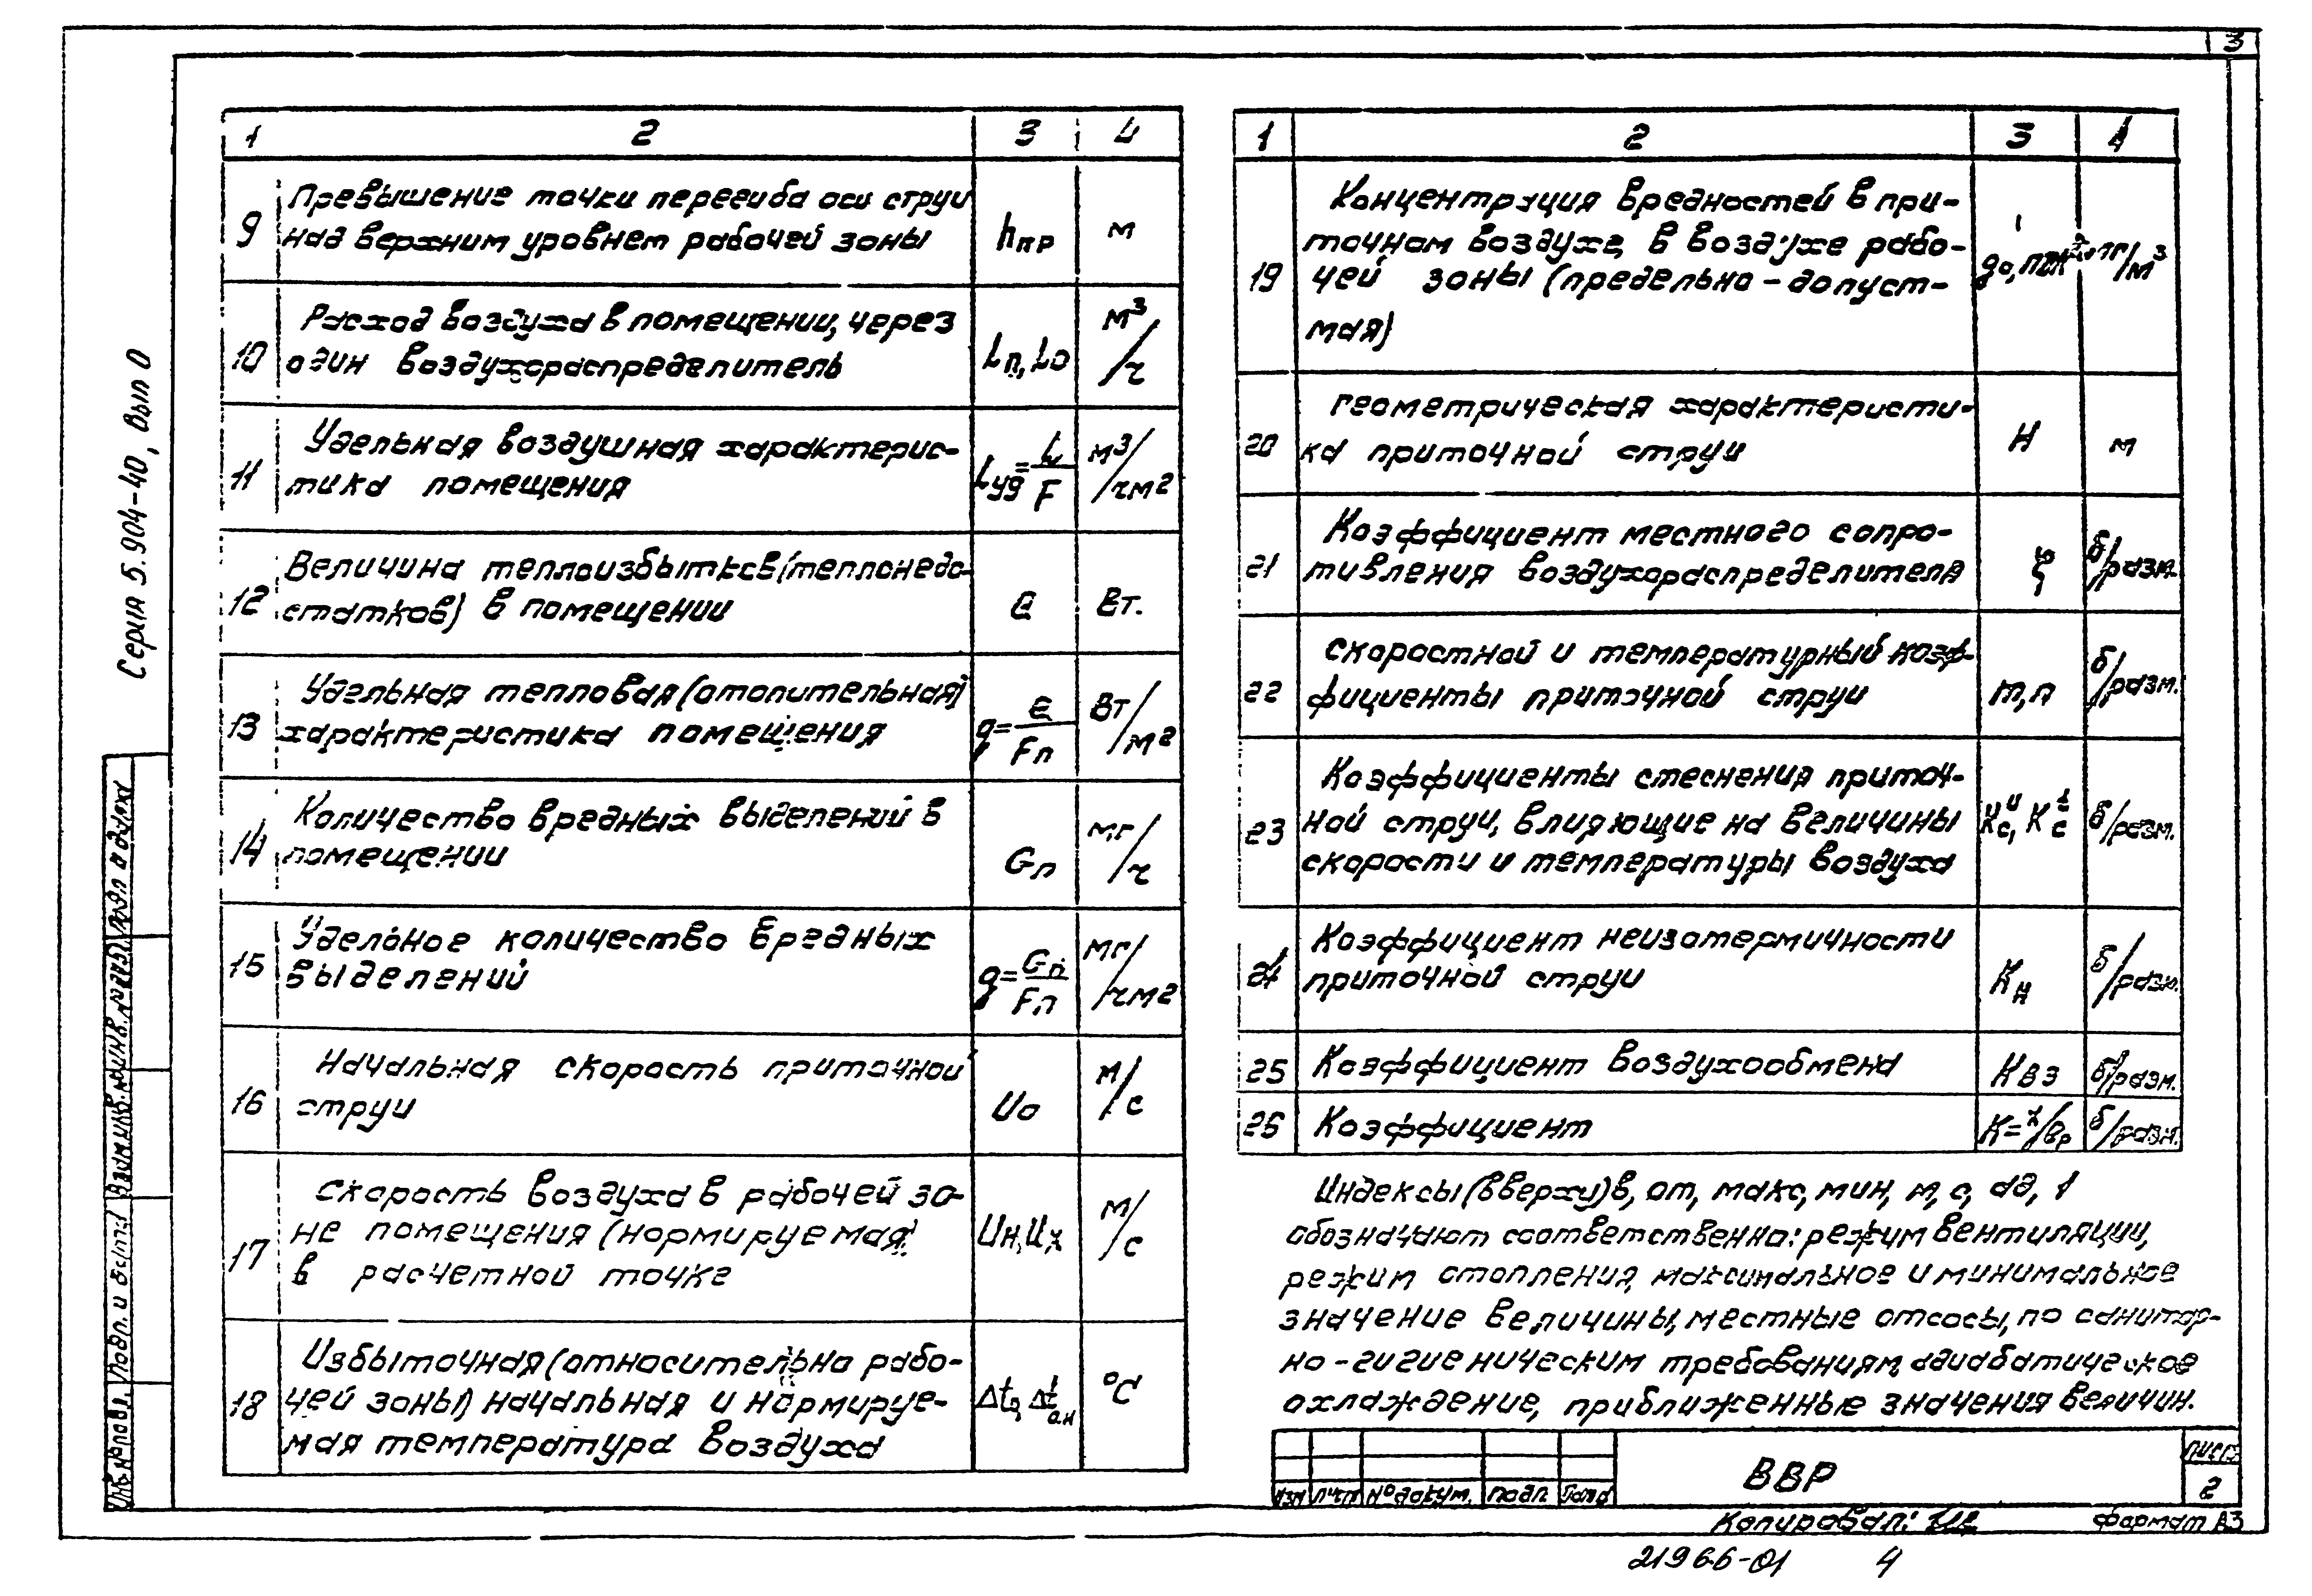 3
Серия 5.904-40, вып 0
1 2 3 4
9 Превышение точки перегиба оси струи
над верхним уровнем рабочей зоны hпр м
10 Расход воздуха в помещении, через
один воздухораспределитель Lп, Lо м³/ч
11 Удельная воздушная характерис-
тика помещения Lуд=L/F м³/чм²
12 Величина теплоизбытков (теплонедо-
статков) в помещении Q Вт.
13 Удельная тепловая (отопительная)
характеристика помещения q=Q/Fп Вт/м²
14 Количество вредных выделений в
помещении Gп мг/ч
15 Удельное количество вредных
выделений g=Gп/Fп мг/чм²
16 Начальная скорость приточной
струи Uо м/с
17 Скорость воздуха в рабочей зо-
не помещения (нормируемая)
в расчетной точке Uн, Uх м/с
18 Избыточная (относительно рабо-
чей зоны) начальная и нормируе-
мая температура воздуха Δtо, Δtо.н °C
1 2 3 4
19 Концентрация вредностей в при-
точном воздухе, в воздухе рабо-
чей зоны (предельно-допуст-
мая) мг/м³
20 Геометрическая характеристи-
ка приточной струи H м
21 Коэффициент местного сопро-
тивления воздухораспределителя ξ б/разм.
22 Скоростной и температурный коэф-
фициенты приточной струи m,n б/разм.
23 Коэффициенты стеснения приточ-
ной струи, влияющие на величины
скорости и температуры воздуха Kсᵘ, Kсᵗ б/разм.
24 Коэффициент неизотермичности
приточной струи Kн б/разм.
25 Коэффициент воздухообмена Kвз б/разм.
26 Коэффициент б/разм.
Индексы (вверху) в, от, макс, мин, м, с, ад, 1
обозначают соответственно: режим вентиляции,
режим отопления, максимальное и минимальное
значение величины, местные отсосы, по санитар-
но-гигиеническим требованиям, адиабатическое
охлаждение, приближенные значения величин.
Изм Лист № докум. Подп. Дата
ВВР
Лист
2
Копировал:
Формат А3
21966-01 4
Инв. № подл. Подп. и дата Взам. инв. № Инв. № дубл. Подп. и дата